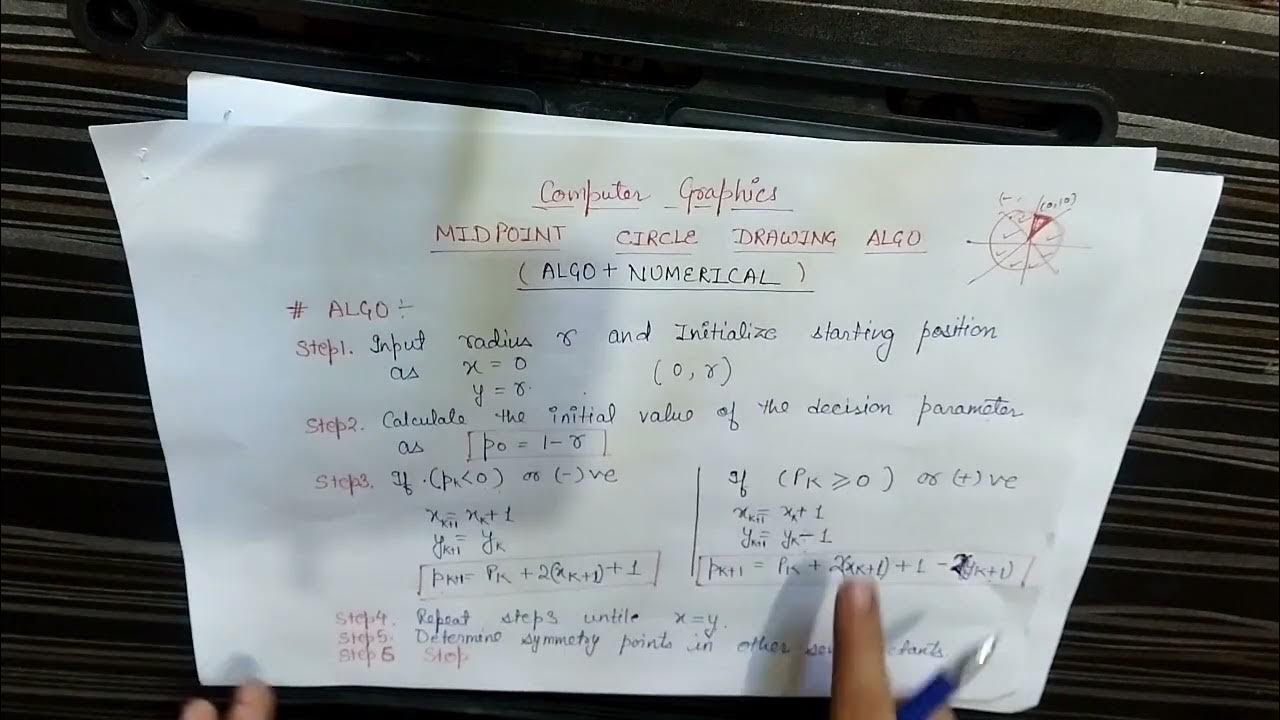 Computer Graphics
MIDPOINT CIRCLE DRAWING ALGO
( ALGO + NUMERICAL )
(0,10)
# ALGO :-
Step1. Input radius r and Initialize starting position
as x = 0 (0, r)
y = r.
Step2. Calculate the initial value of the decision parameter
as p0 = 1 - r
Step3. If (pk < 0) or (-)ve
xk+1 = xk + 1
yk+1 = yk
pk+1 = Pk + 2(xk+1) + 1
If (Pk ≥ 0) or (+)ve
xk+1 = xk + 1
yk+1 = yk - 1
pk+1 = Pk + 2(xk+1) + 1 - 2(yk+1)
Step4. Repeat step3 untile x = y.
Step5. Determine symmetry points in other
Step6 Stop